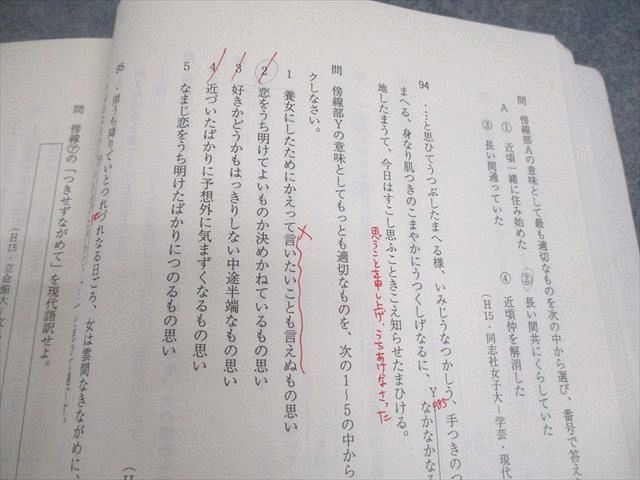 問　傍線部Aの意味として最も適切なものを次の中から選び、番号で答え
A　①　近頃一緒に住み始めた　②　長い間共にくらしていた
③　長い間通っていた　④　近頃仲を解消した
(日15・同志社女子大―学芸・現代
94　……と思ひてうつぶしたまへる様、いみじうなつかしう、手つきのつ
まへる、身なり肌つきのこまやかにうつくしげなるに、Yなかなかなる
P85
地したまうて、今日はすこし思ふこときこえ知らせたまひける。
思うことを申し上げ、うちあけなさった
問　傍線部Yの意味としてもっとも適切なものを、次の1〜5の中から
クしなさい。
1　養女にしたためにかえって言いたいことも言えぬもの思い
2　恋をうち明けてよいものか決めかねているもの思い
3　好きかどうかもはっきりしない中途半端なもの思い
4　近づいたばかりに予想外に気まずくなるもの思い
5　なまじ恋をうち明けたばかりにつのるもの思い
(日
95　・雨うち降りていとつれづれなる日ごろ、女は雲間なきながめに、
問　傍線⑦の「つきせずながめて」を現代語訳せよ。
(日15・立命館大―文